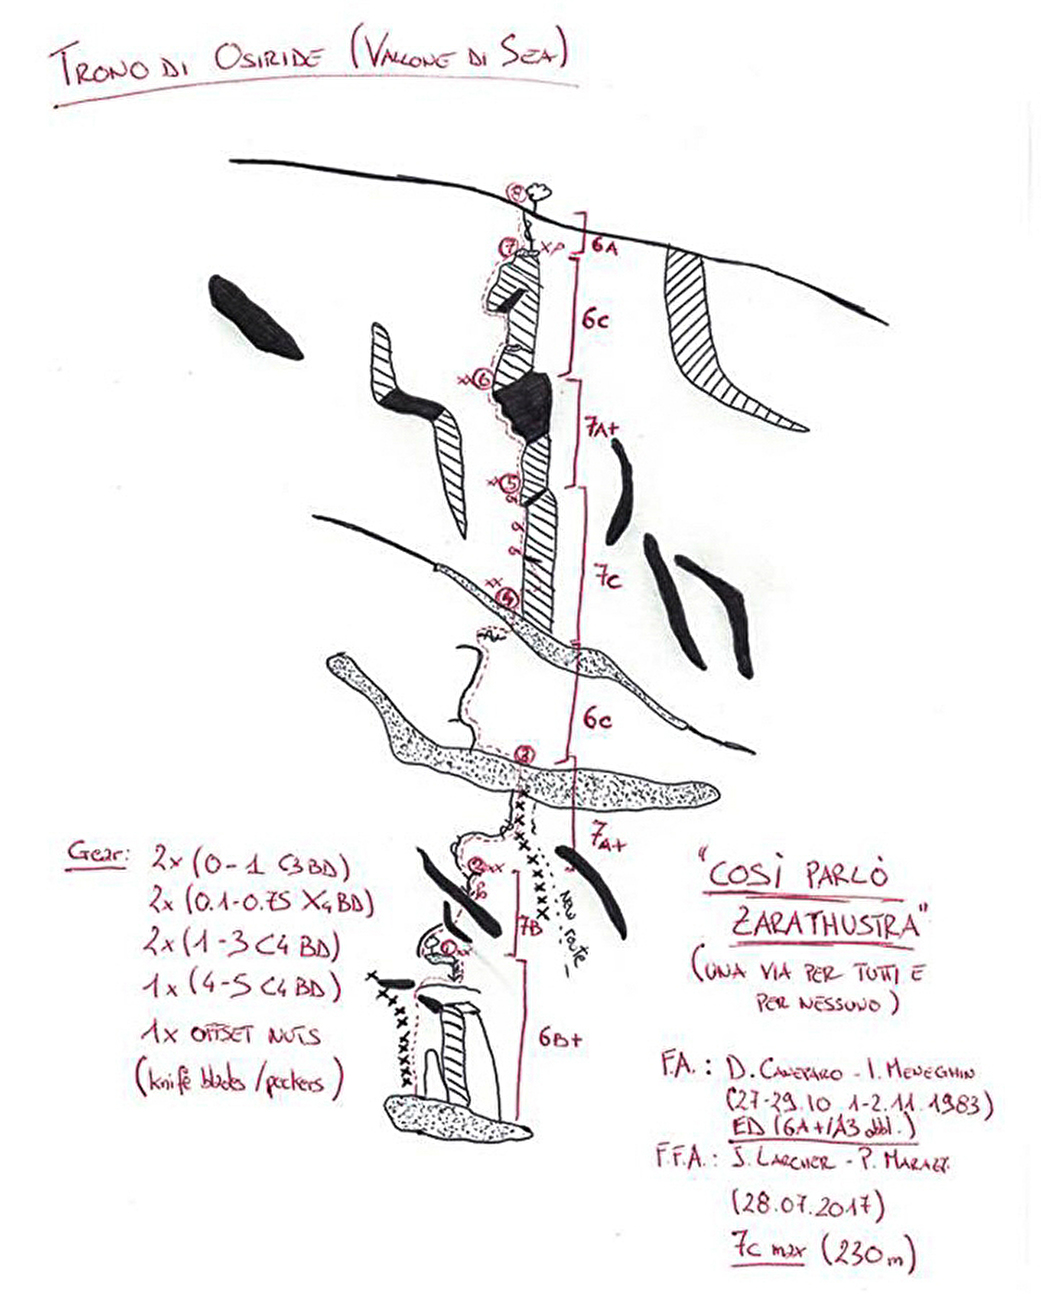 TRONO DI OSIRIDE (VALLONE DI SEA)
8
7 XP
6A
6C
XX 6
7A+
XX 5
7C
XX 4
6C
3
7A+
2 XX
New route
7B
1 XX
6B+
Gear: 2x (0-1 C3 BD)
2x (0.1-0.75 X4 BD)
2x (1-3 C4 BD)
1x (4-5 C4 BD)
1x OFFSET NUTS
(knife blades/peckers)
"COSÌ PARLÒ
ZARATHUSTRA"
(UNA VIA PER TUTTI E
PER NESSUNO)
F.A.: D. CANEPARO - I. MENEGHIN
(27-29.10 1-2.11.1983)
ED (6A+/A3 obbl.)
F.F.A.: J. LARCHER - P. MARAZZI
(28.07.2017)
7c max (230m)